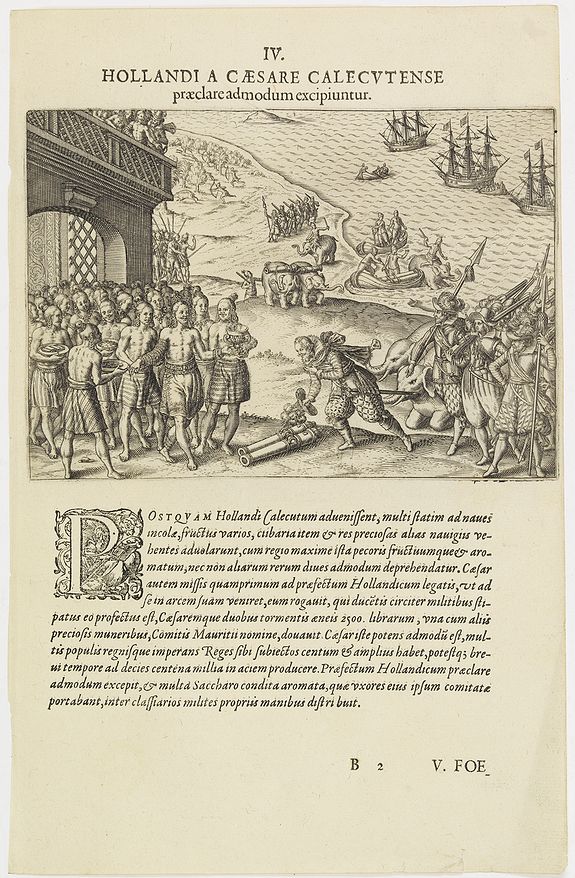 IV.
HOLLANDI A CÆSARE CALECVTENSE
præclare admodum excipiuntur.
POSTQVAM Hollandi Calecutum aduenissent, multi statim ad naues
incolæ, fructus varios, cibaria item & res preciosas alias nauigiis ve-
hentes aduolarunt, cum regio maxime ista pecoris fructuumque & aro-
matum, nec non aliarum rerum diues admodum deprehendatur. Cæsar
autem missis quamprimum ad præfectum Hollandicum legatis, vt ad
se in arcem suam veniret, eum rogauit, qui ducētis circiter militibus sti-
patus eo profectus est, Cæsaremque duobus tormentis æneis 2500. librarum, vna cum aliis
preciosis muneribus, Comitis Mauritii nomine, donauit. Cæsar iste potens admodū est, mul-
tis populis regnisque imperans Reges sibi subiectos centum & amplius habet, potestq; bre-
ui tempore ad decies centena millia in aciem producere. Præfectum Hollandicum præclare
admodum excepit, & multa Saccharo condita aromata, quæ vxores eius ipsum comitatæ
portabant, inter classiarios milites propriis manibus distribuit.
B 2 V. FOE